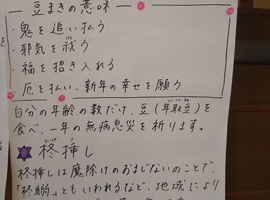 豆まきの意味
・鬼を追い払う
・邪気を祓う
・福を招き入れる
・厄を払い、新年の幸せを願う
自分の年齢の数だけ、豆（年取豆）を
食べ、一年の無病息災を祈ります。
柊挿し
柊挿しは魔除けのおまじないのことで、
「柊鰯」ともいわれるなど、地域により